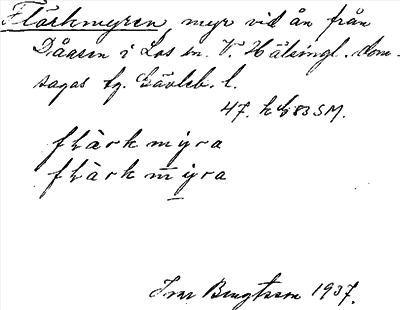 Flarkmyren, myr vid ån från
Dåasen i Los sn. V. Hälsingl. dom-
sagas tg. Gävleb. l.
47. h G 83 SM.
flàrk myra
flàrk myra
Ivar Bengtsson 1937.